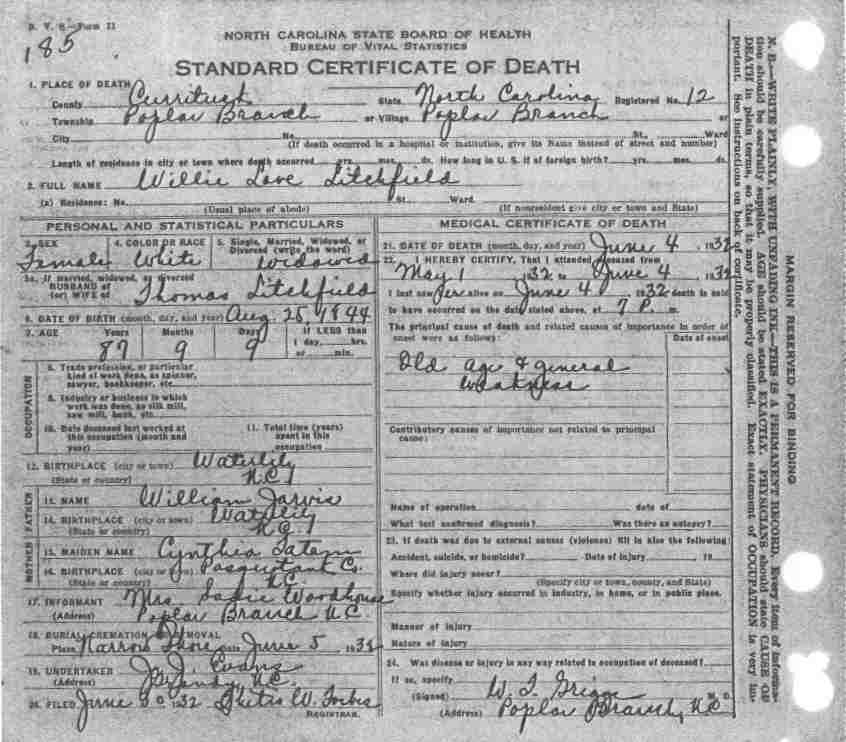 185
NORTH CAROLINA STATE BOARD OF HEALTH
BUREAU OF VITAL STATISTICS
STANDARD CERTIFICATE OF DEATH
1. PLACE OF DEATH
County Currituck State North Carolina Registered No. 12
Township Poplar Branch or Village Poplar Branch or
City No. St., Ward
(If death occurred in a hospital or institution, give its Name instead of street and number)
Length of residence in city or town where death occurred yrs. mos. ds. How long in U. S. if of foreign birth? yrs. mos. ds.
2. FULL NAME Willie Love Litchfield
(a) Residence: No. St., Ward.
(Usual place of abode) (If nonresident give city or town and State)
PERSONAL AND STATISTICAL PARTICULARS
3. SEX 4. COLOR OR RACE 5. Single, Married, Widowed, or Divorced (write the word)
Female White Widowed
5a. If married, widowed, or divorced
HUSBAND of
(or) WIFE of Thomas Litchfield
6. DATE OF BIRTH (month, day, and year) Aug 25, 1844
7. AGE Years Months Days If LESS than
87 9 9 1 day, hrs.
or min.
OCCUPATION
8. Trade, profession, or particular
kind of work done, as spinner,
sawyer, bookkeeper, etc.
9. Industry or business in which
work was done, as silk mill,
saw mill, bank, etc.
10. Date deceased last worked at
this occupation (month and
year)
11. Total time (years)
spent in this
occupation
12. BIRTHPLACE (city or town) Waterlily
(State or country) N.C.
FATHER
13. NAME William Jarvis
14. BIRTHPLACE (city or town) Waterlily
(State or country) N.C.
MOTHER
15. MAIDEN NAME Cynthia Tatem
16. BIRTHPLACE (city or town) Pasquotank Co.
(State or country) N.C.
17. INFORMANT Mrs Sadie Woodhouse
(Address) Poplar Branch N.C.
18. BURIAL, CREMATION OR REMOVAL
Place Narrow Shore Date June 5 1932
19. UNDERTAKER Evans
(Address) Jarvisburg N.C.
20. FILED June 30 1932 W. Forbes
REGISTRAR.
MEDICAL CERTIFICATE OF DEATH
21. DATE OF DEATH (month, day, and year) June 4, 1932
22. I HEREBY CERTIFY, That I attended deceased from
May 1 1932 to June 4 1932
I last saw her alive on June 4 1932 death is said
to have occurred on the date stated above, at 7 P. m.
The principal cause of death and related causes of importance in order of
onset were as follows: Date of onset
Old age & general
weakness
Contributory causes of importance not related to principal
cause:
Name of operation date of
What test confirmed diagnosis? Was there an autopsy?
23. If death was due to external causes (violence) fill in also the following:
Accident, suicide, or homicide? Date of injury 19
Where did injury occur?
(Specify city or town, county, and State)
Specify whether injury occurred in industry, in home, or in public place.
Manner of injury
Nature of injury
24. Was disease or injury in any way related to occupation of deceased?
If so, specify
(Signed) W. T. Griggs M. D.
(Address) Poplar Branch, N.C.
MARGIN RESERVED FOR BINDING
N. B.—WRITE PLAINLY, WITH UNFADING INK—THIS IS A PERMANENT RECORD. Every item of informa-
tion should be carefully supplied. AGE should be stated EXACTLY. PHYSICIANS should state CAUSE OF
DEATH in plain terms, so that it may be properly classified. Exact statement of OCCUPATION is very im-
portant. See instructions on back of certificate.